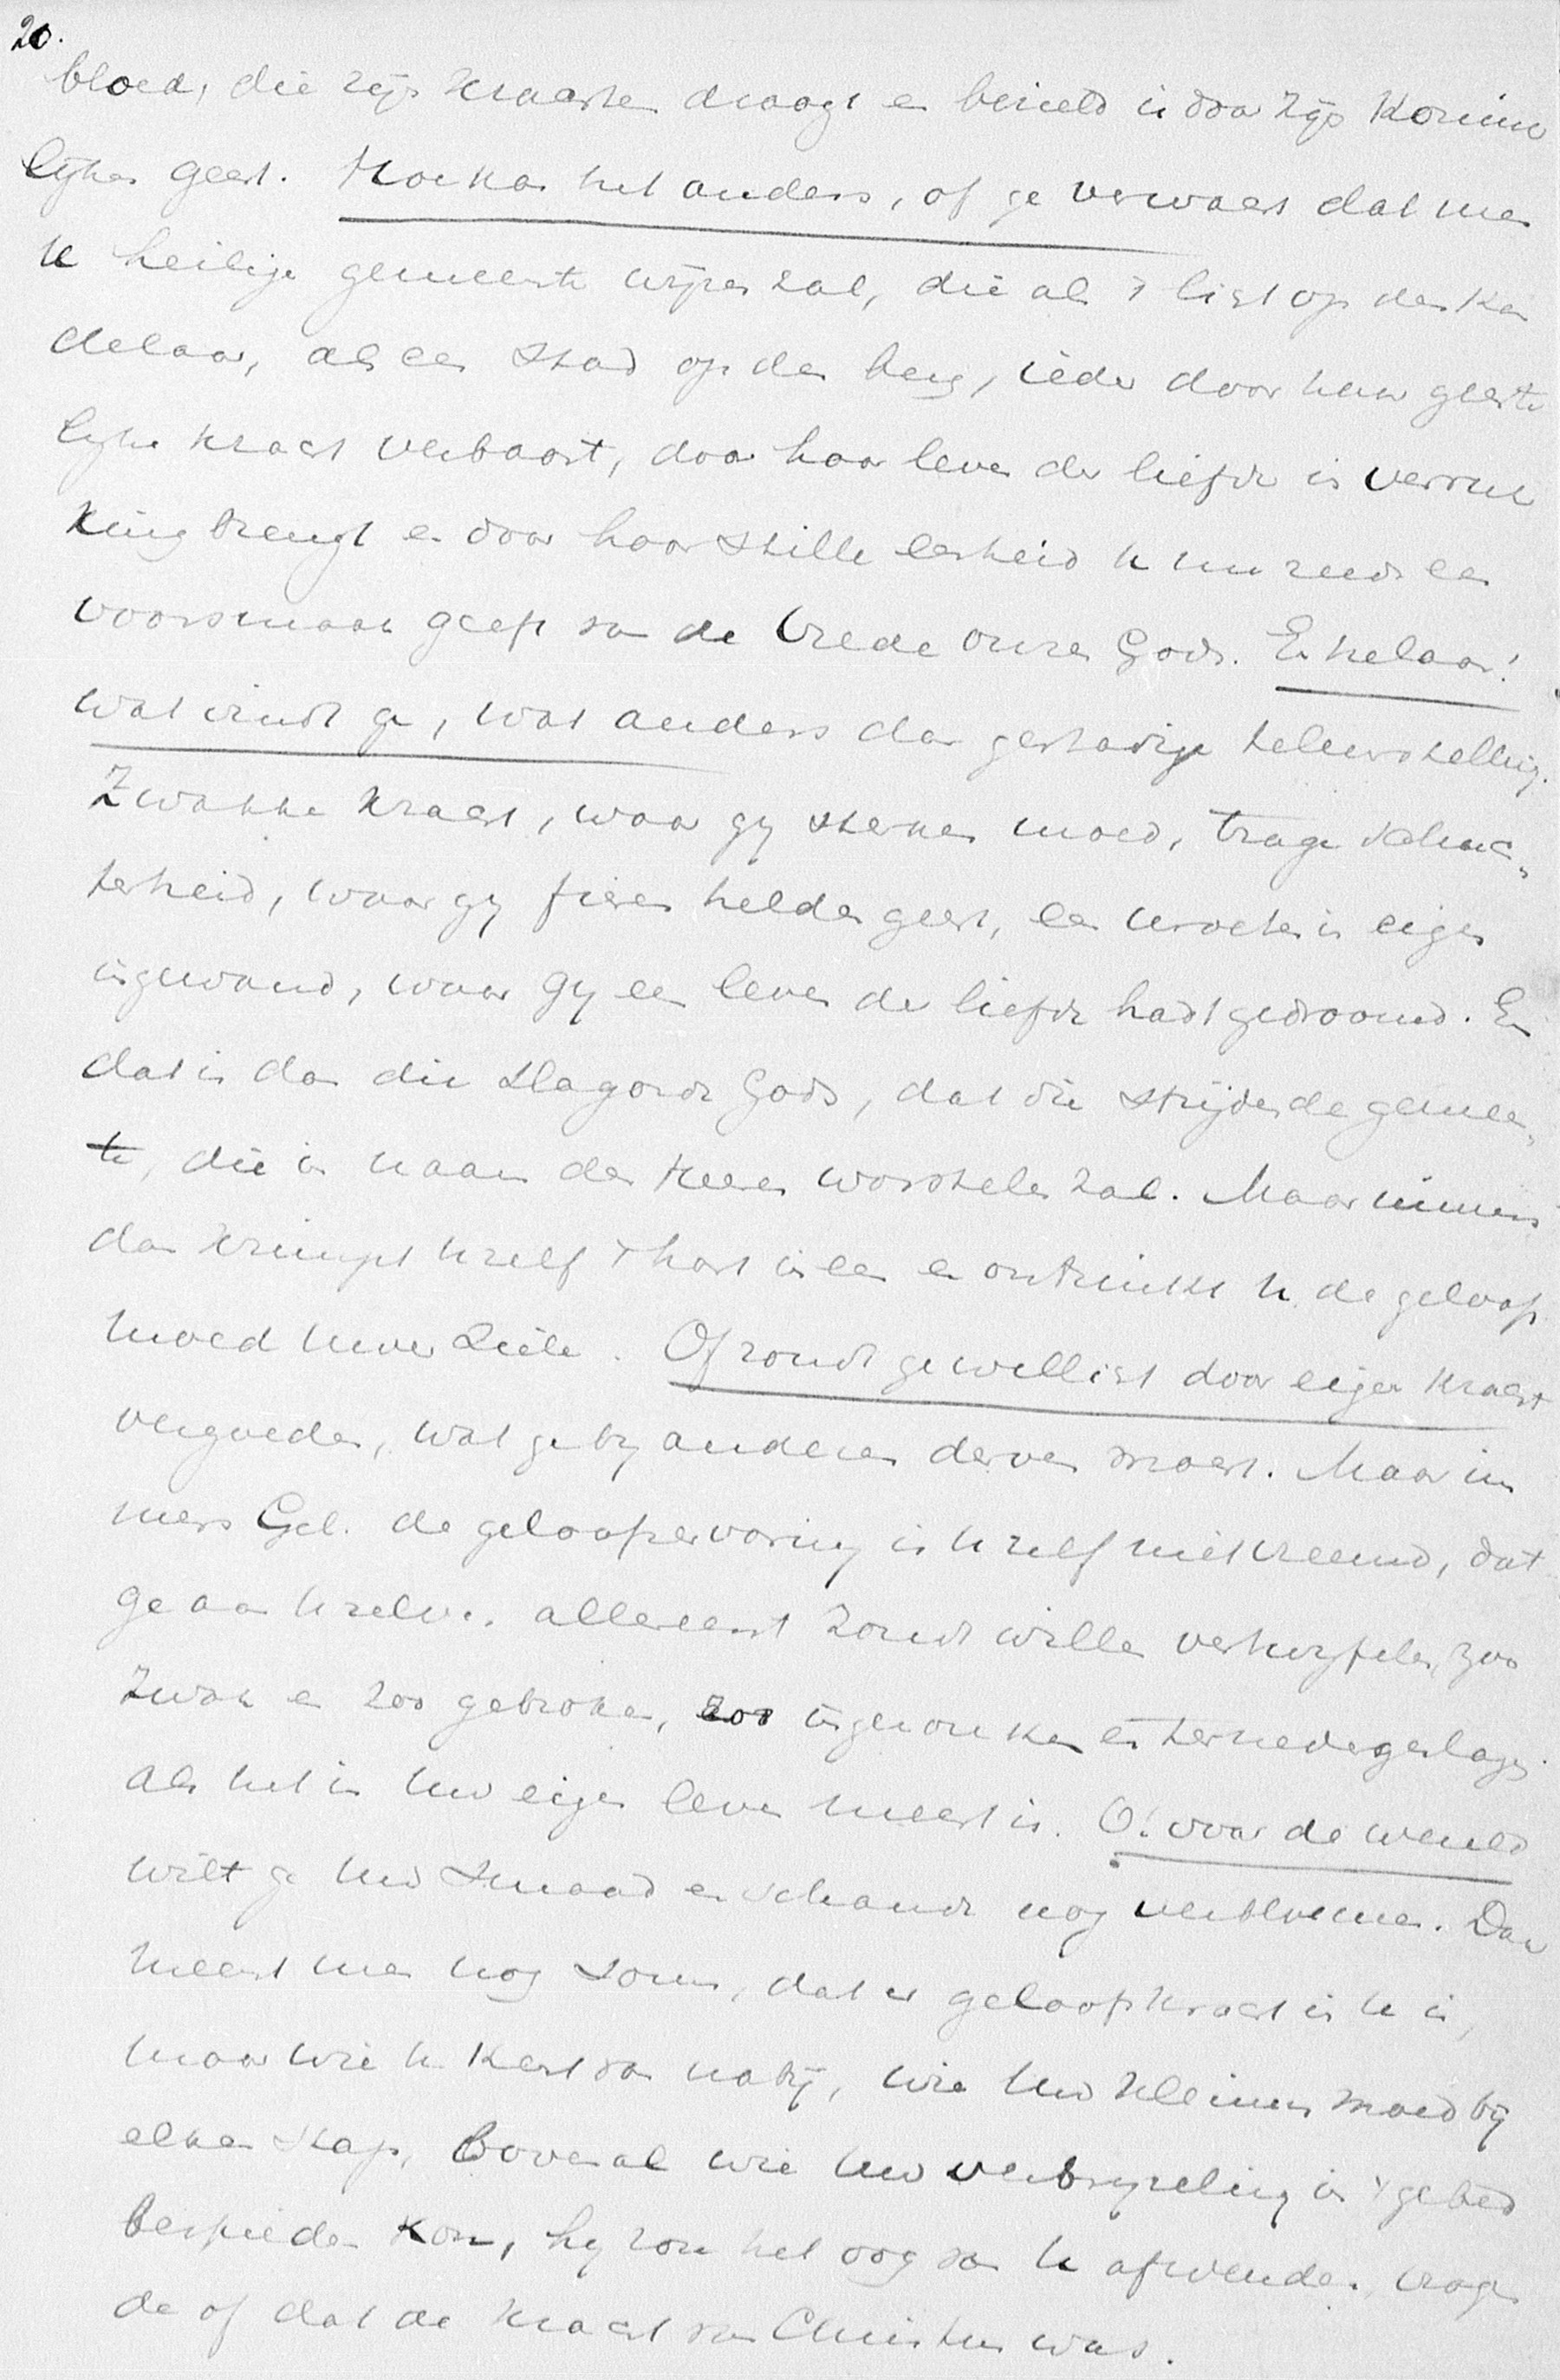 20.
bloed, die zijn krachten draagt en bezield is door zijn Konink
lijken geest. Hoe kan het anders, of ge verwacht dat men
u heilige gemeente wijzen zal, die als 't licht op den kan
delaar, als een stad op den berg, ieder door haar geeste
lijke kracht verbaast, door haar leven der liefde in verruk
king brengt en door haar stille eenheid u nu reeds een
voorsmaak geeft van de vrede onzes Gods. En helaas!
wat vindt ge, wat anders dan gestadige teleurstelling.
Zwakke kracht, waar gij sterken moed, trage schuch„
terheid, waar gij fieren heldengeest, een wroeten in eigen
ingewand, waar gij een leven der liefde hadt gedroomd. En
dat is dan die slagorde Gods, dat die strijdende gemeen„
te, die in naam des Heeren worstelen zal. Maar immers
dan krimpt u zelf 't hart ineen en ontzinkt u de geloofs
moed uwer ziele. Of zoudt ge wellicht door eigen kracht
vergoeden, wat ge bij anderen derven moest. Maar im
mers Gel. de geloofservaring is u zelf niet vreemd, dat
ge aan u zelven allereerst zoudt willen vertwijfelen, zoo
zwak en zoo gebroken, zoo ingezonken en ternedergeslagen
als het in uw eigen leven meest is. O! voor de wereld
wilt ge uw smaad en schande nog verbloemen. Dan
meent men nog soms, dat er geloofskracht in u is,
maar wie u kent van nabij, wie uw kleinen moed bij
elken stap, bovenal wie uw verbrijzeling in 't gebed
bespieden kon, hij zou het oog van u afwenden, vragen
de of dat de kracht van Christus was.